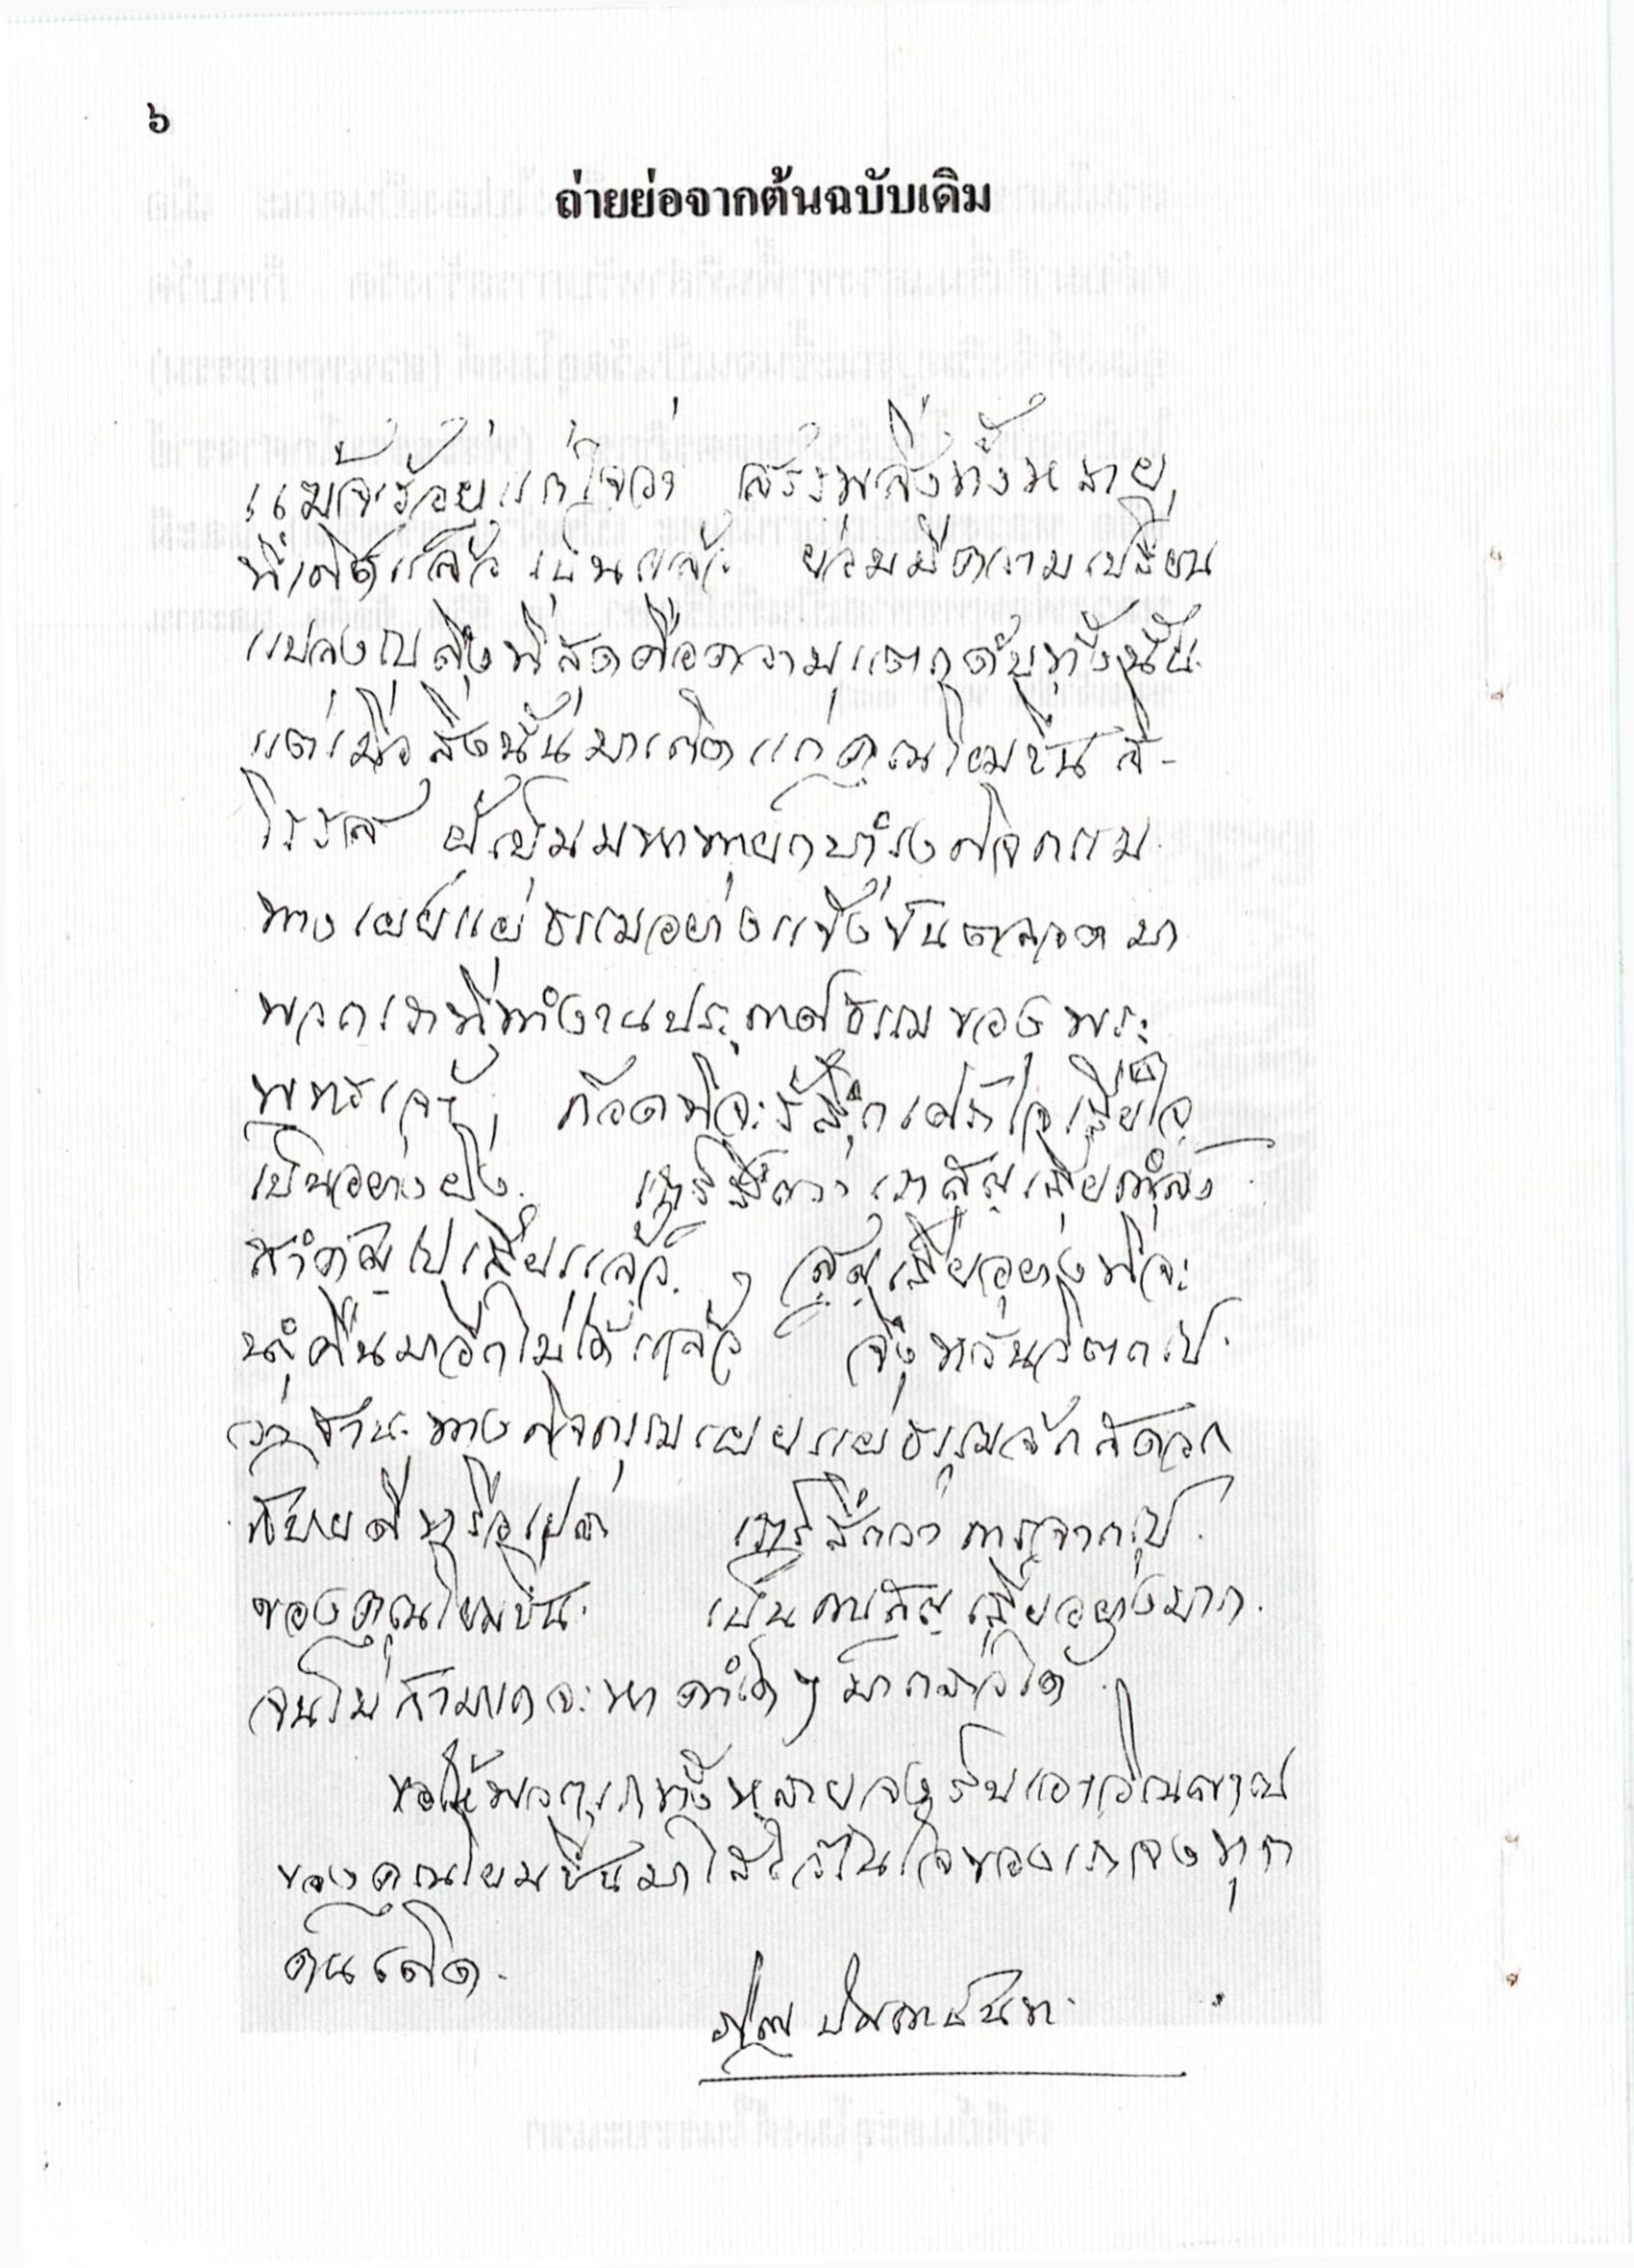 ๖
ถ่ายย่อจากต้นฉบับเดิม
แม้จะรู้อยู่แก่ใจว่า สรรพสิ่งทั้งหลาย
ที่เกิดแล้ว เป็นแล้ว ย่อมมีความเปลี่ยน
แปลงไปสู่ที่สุดคือความแตกดับทั้งนั้น
แต่เมื่อสิ่งนั้นมาเกิดแก่คุณโยมชื่น สิ-
โรรส ผู้เป็นมหาทายกบำรุงกิจกรรม
ทางเผยแผ่ธรรมอย่างแข็งขันตลอดมา
พวกเราที่ทำงานประกาศธรรมของพระ
พุทธเจ้า ก็อดที่จะรู้สึกเศร้าใจเสียใจ
เป็นอย่างยิ่ง เรารู้สึกว่าเราสูญเสียกำลัง
สำคัญไปเสียแล้ว สูญเสียอย่างที่จะ
นำคืนมาอีกไม่ได้แล้ว จึงหวั่นวิตกไป
ว่าฐานะทางกิจกรรมเผยแผ่ธรรมจักสะดวก
สบายดีหรือเปล่า เรารู้สึกว่าการจากไป
ของคุณโยมชื่น เป็นการสูญเสียอย่างมาก
จนไม่สามารถจะหาคำใดๆ มากล่าวได้
ขอให้พวกเราทั้งหลายจงรับเอาวิญญาณ
ของคุณโยมชื่นมาใส่ไว้ในใจของเราจงทุก
คนเถิด
ปัญญานันทะ